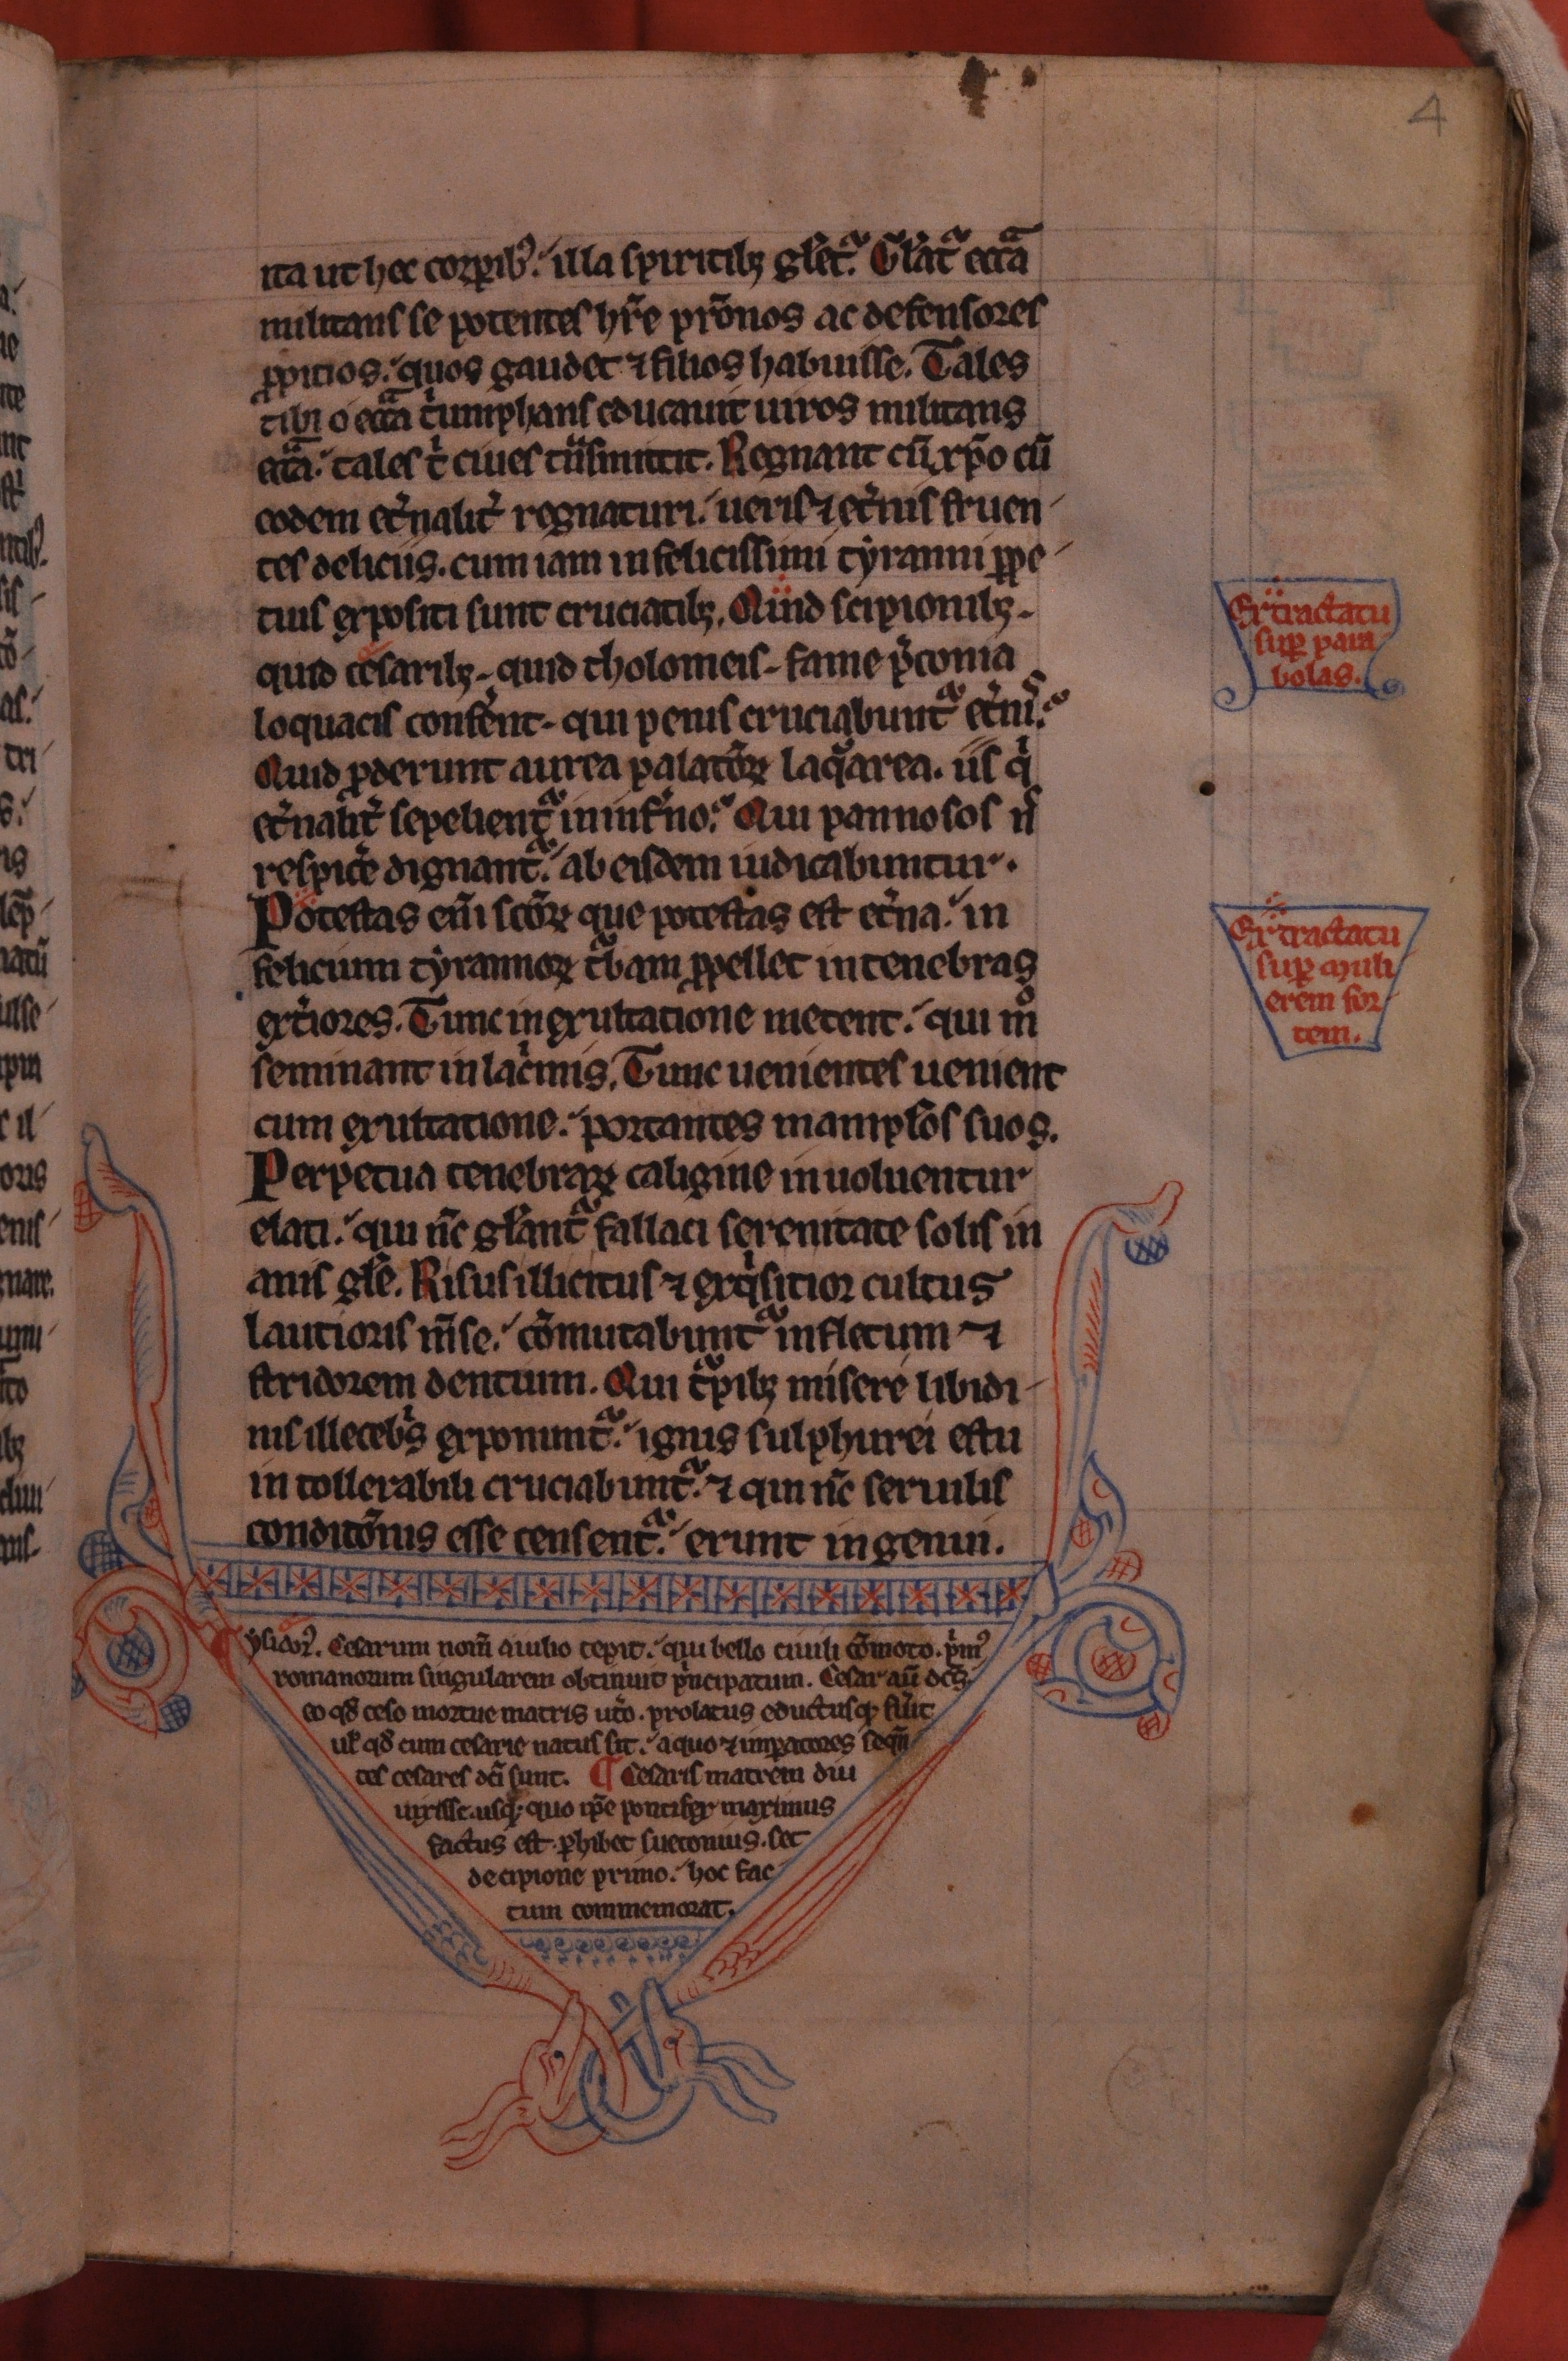 ita ut hec corꝑib᷒. illa spiritibꝫ gl̃et᷑. Gl̃at᷑ ecc̃a
militans se potentes hr̃e pr̃onos ac defensores
ꝓpitios. quos gaudet ⁊ filios habuisse. Tales
tibi o ecc̃a tͥumphans educauit uiros militans
ecc̃a. tales tͥ ciues tͣnsmittit. Regnant cũ xp̃o cũ
eodem et̾nalit̾ regnaturi. ueris ⁊ et̾nis fruen
tes deliciis. cum iam infelicissimi tyranni ꝑpe
tuis expositi sunt cruciatibꝫ. Quid scipionibꝫ
quid cesaribꝫ quid tholomeis fame p̾conia
loquacis confer̾nt qui penis cruciabunt᷑ et̾nis.
Quid ꝓderunt aurea palatoꝝ laqͣarea. iis qͥ
et̾nalit̾ sepelient᷑ in inf̾no. Qui pannosos ñ
respice̾ dignant᷑. ab eisdem iudicabuntur.
Potestas em̃ sc̃oꝝ que potestas est et̾na. in
felicium tyrannoꝝ tͬbam ꝓpellet in tenebras
ext̾iores. Tunc in exultatione metent. qui mͦ
seminant in lac̾mis. Tunc uenientes uenient
cum exultatione. portantes manipl̃os suos.
Perpetua tenebraꝝ caligine inuoluentur
elati. qui nc̃ gl̃ant᷑ fallaci serenitate solis in
anis gl̃e. Risus illicitus ⁊ exqͥsitior cultus
lautioris m̃se. cõmutabunt᷑ in fletum ⁊
stridorem dentium. Qui tͬpibꝫ misere libidi
nis illecebͥs exponunt᷑. ignis sulphurei estu
in tollerabili cruciabunt᷑. ⁊ qui nc̃ seruilis
conditõnis esse censent᷑. erunt ingenui.
Ex tractatu
suꝑ para
bolas.
Ex tractatu
suꝑ muli
erem for
tem.
ysidor᷒. Cesarum nom̃ a iulio cepit. qui bello ciuili cõmoto. pͥm᷒
romanorum singularem obtinuit pͥncipatum. Cesar aũ dc̃s
eo qd̃ ceso mortue matris ut̾o. prolatus eductusqꝫ fu̾it
ul̃ qd̃ cum cesarie natus sit. a quo ⁊ imꝑatores seqũ
tes cesares dc̃i sunt. ¶ Cesaris matrem diu
uixisse. usqꝫ quo ip̃e pontifex maximus
factus est ꝑhibet suetonius. set
decipione primo. hoc fac
tum commemorat.
4